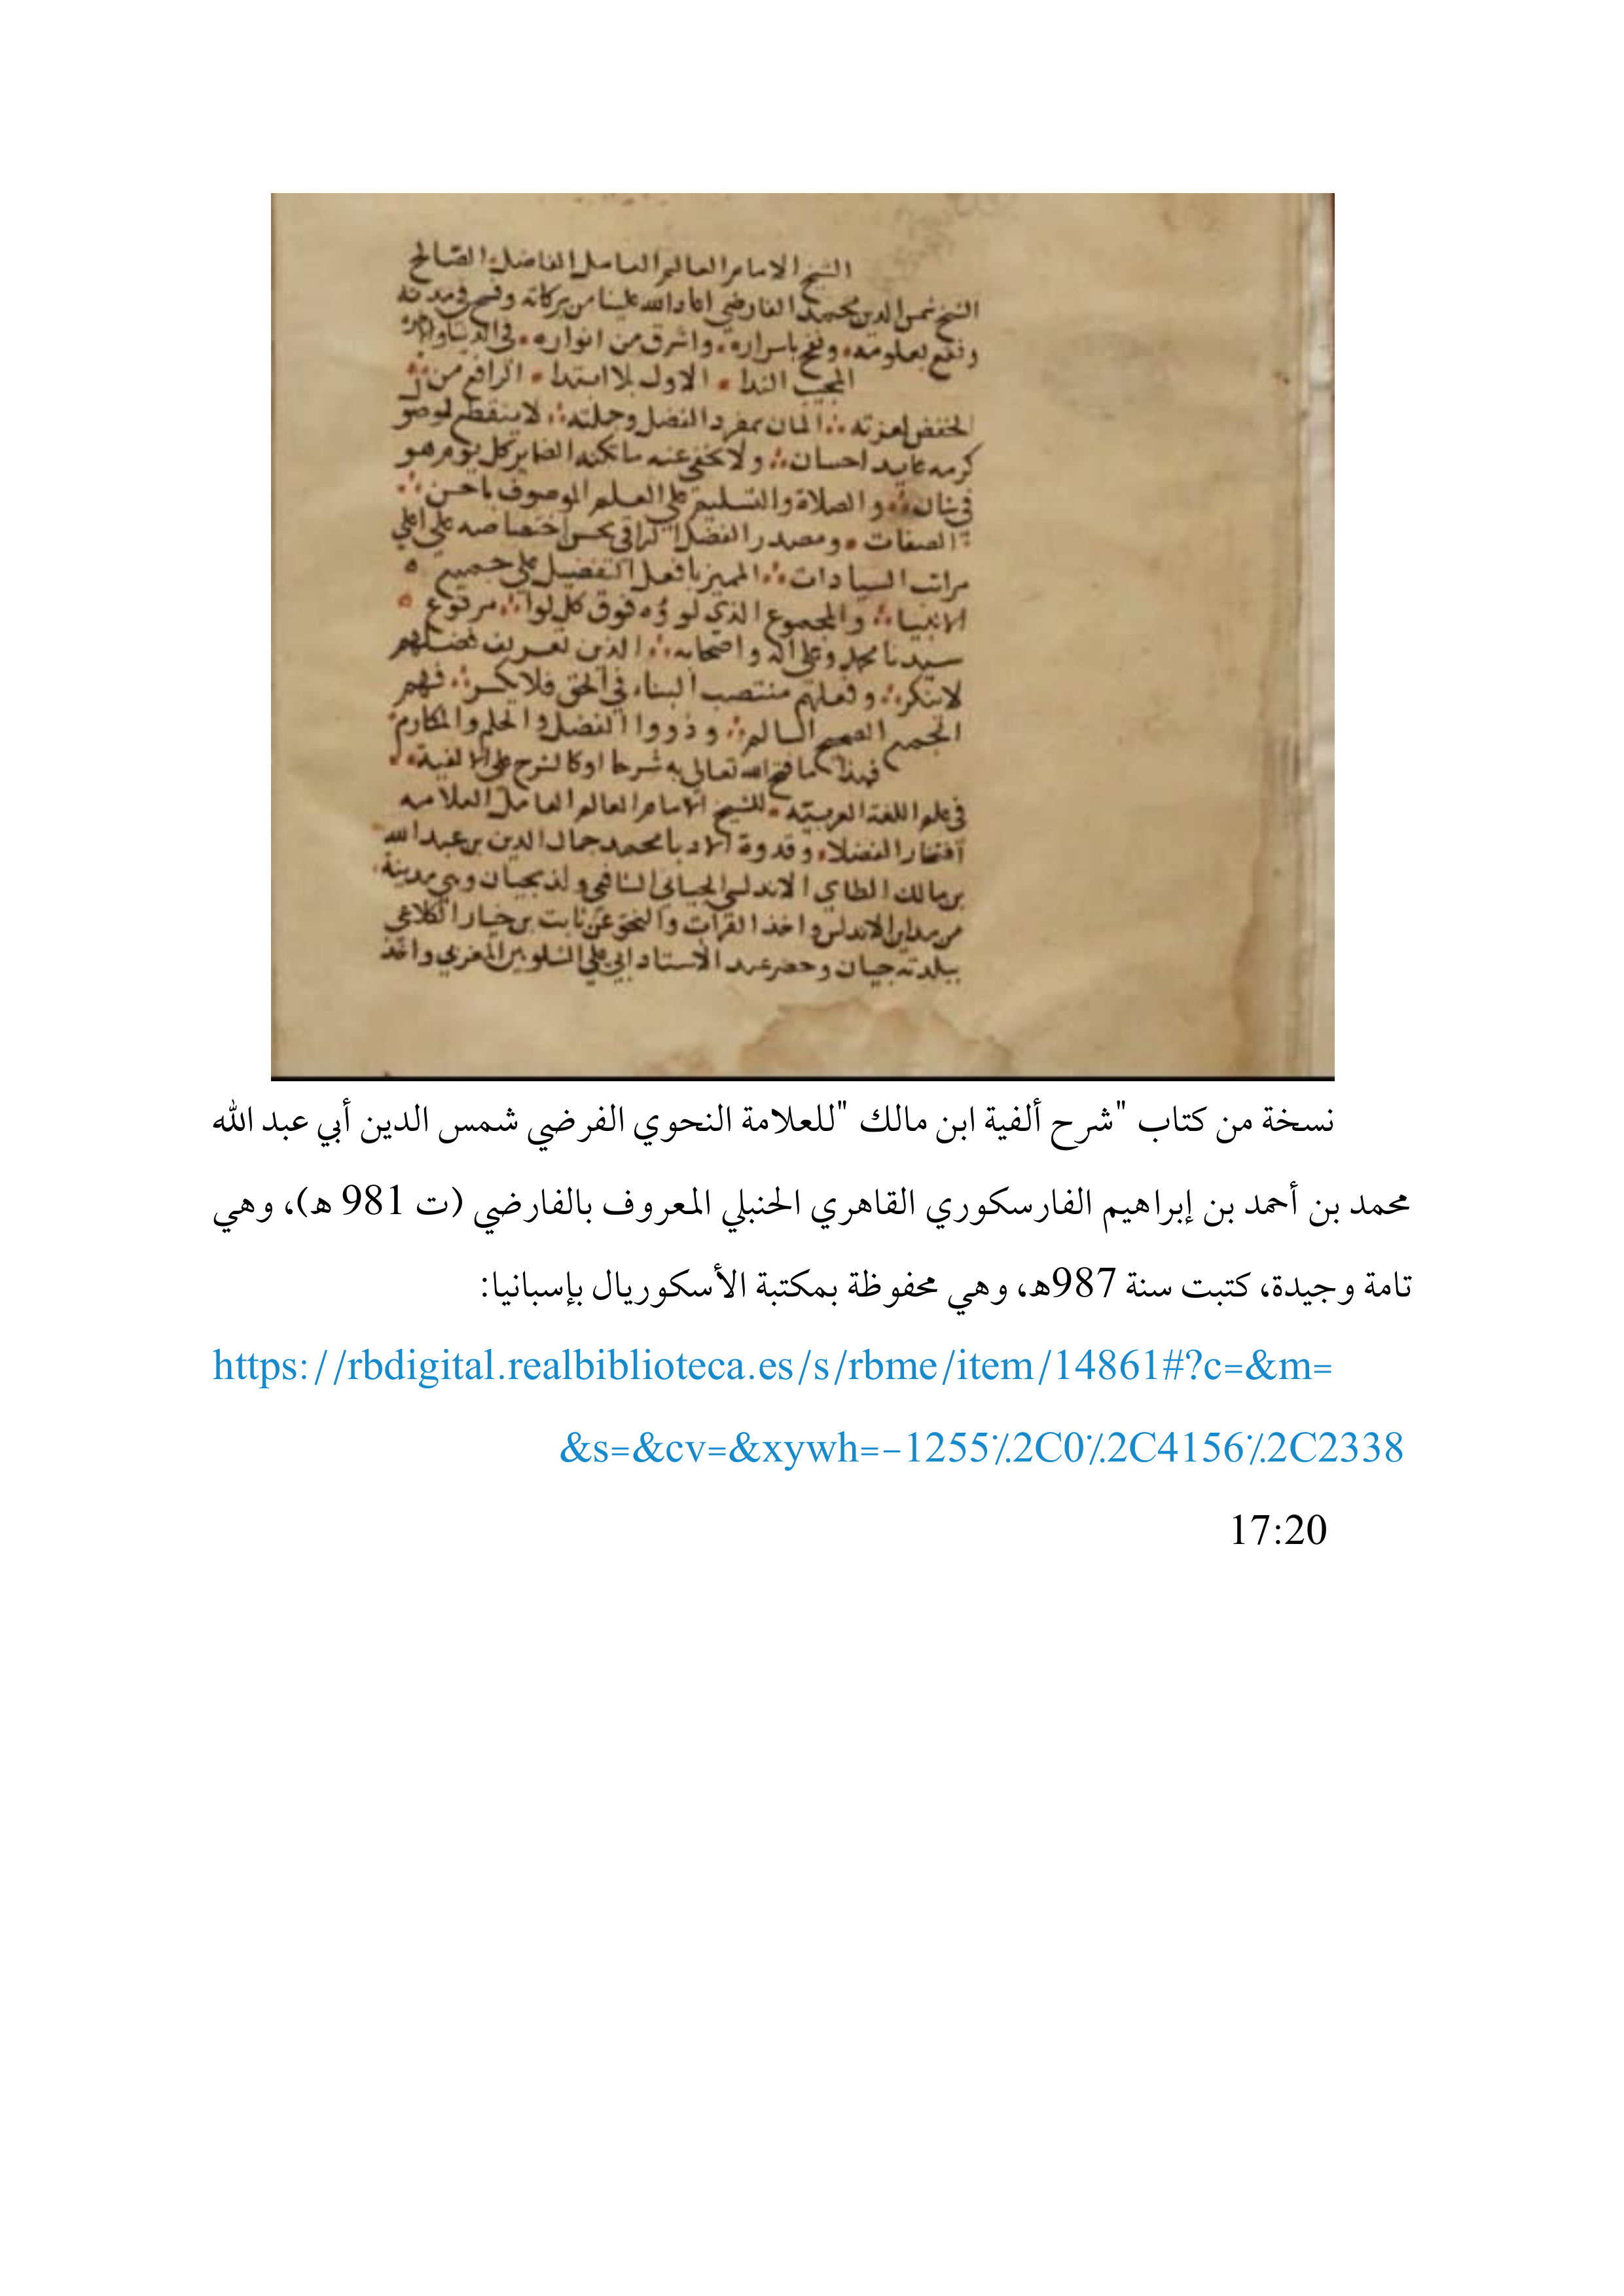 الشيخ الامام العالم العامل الفاضل الصالح
الشيخ شمس الدين محمد الفارضي اعاد الله علينا من بركاته وفسح في مدته
ونفع بعلومه ونفح باسراره واشرق من انواره في الدنيا والاخرة
المجيب الندا الاول بلا ابتدا الرافع من
الخفض لعزته المان بمفرد الفضل وجملته لا ينقطع لموصو
كرمه عايد احسان ولا يخفي عنه ما تكنه الضماير كل يوم هو
في شان والصلاة والتسليم علي العلم الموصوف باحسن
الصفات ومصدر الفضل الراقي بحسن اختصاصه علي اعلي
مراتب السيادات المميز بافعل التفضيل علي جميع
الانبياء والمجموع الذي لوؤه فوق كل لوا مرفوع
سيدنا محمد وعلي اله واصحابه الذين تعريف فضلهم
لا ينكر وفعلهم منتصب البناء في الحق فلا يكسر فهم
الجمع الصحيح السالم وذووا الفضل والحلم والمكارم
فهذا ما فتح الله تعالي به شرحا اوكالشرح علي الالفية
في علم اللغة العربية للشيخ الامام العالم العامل العلامه
افتخار الفضلا وقدوة الادبا محمد جمال الدين بن عبد الله
بن مالك الطاي الاندلسي الجياني الشافعي ولد بجيان وهي مدينة
من مداين الاندلس واخذ القرات والنحو عن ثابت بن خيار الكلاعي
ببلدته جيان وحضر عند الاستاد ابي علي الشلوبين المغربي واخذ
نسخة من كتاب "شرح ألفية ابن مالك "للعلامة النحوي الفرضي شمس الدين أبي عبد الله
محمد بن أحمد بن إبراهيم الفارسكوري القاهري الحنبلي المعروف بالفارضي (ت 981 ه)، وهي
تامة وجيدة، كتبت سنة 987ه، وهي محفوظة بمكتبة الأسكوريال بإسبانيا:
https://rbdigital.realbiblioteca.es/s/rbme/item/14861#?c=&m=
&s=&cv=&xywh=-1255٪2C0٪2C4156٪2C2338
17:20